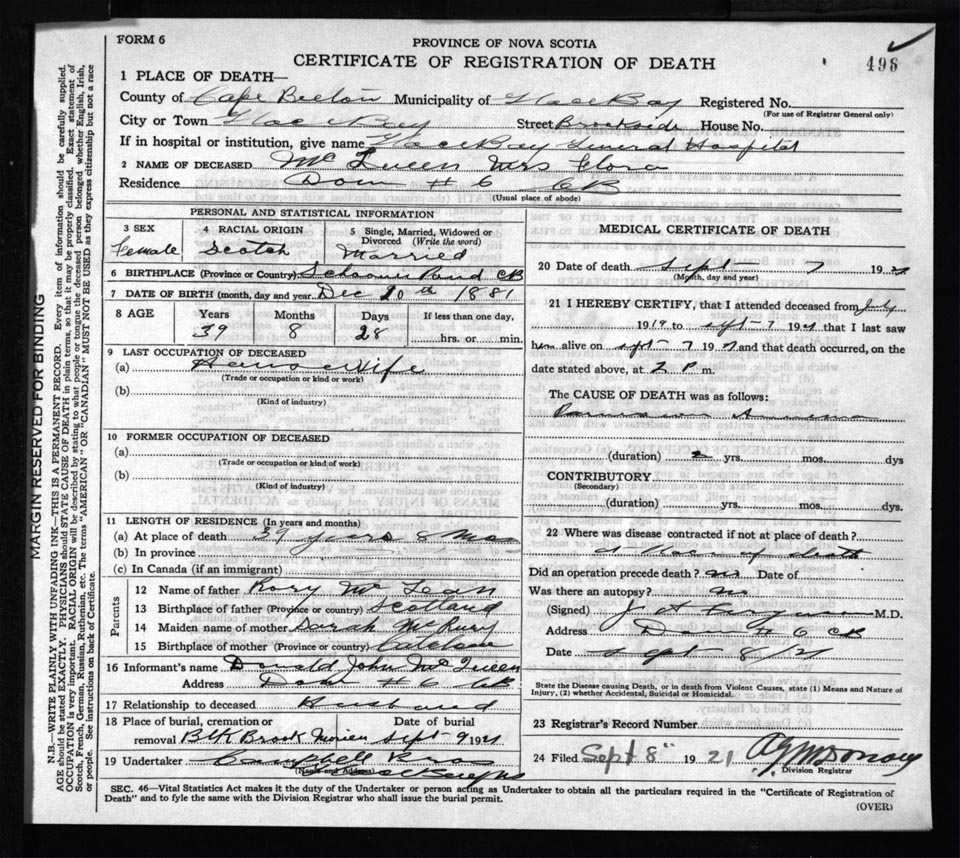 FORM 6
PROVINCE OF NOVA SCOTIA
CERTIFICATE OF REGISTRATION OF DEATH
498
1 PLACE OF DEATH—
County of Cape Breton Municipality of Glace Bay Registered No.
(For use of Registrar General only)
City or Town Glace Bay Street Brookside House No.
If in hospital or institution, give name Glace Bay General Hospital
2 NAME OF DECEASED McQueen Mrs Flora
Residence Dom # 6 CB
(Usual place of abode)
PERSONAL AND STATISTICAL INFORMATION
3 SEX Female
4 RACIAL ORIGIN Scotch
5 Single, Married, Widowed or Divorced (Write the word) Married
6 BIRTHPLACE (Province or Country) Schooner Pond CB
7 DATE OF BIRTH (month, day and year Dec 10th 1881
8 AGE Years 39 Months 8 Days 28 If less than one day, hrs. or min.
9 LAST OCCUPATION OF DECEASED
(a) House Wife
(Trade or occupation or kind or work)
(b)
(Kind of industry)
10 FORMER OCCUPATION OF DECEASED
(a)
(Trade or occupation or kind of work)
(b)
(Kind of industry)
11 LENGTH OF RESIDENCE (In years and months)
(a) At place of death 39 years 8 Mos
(b) In province
(c) In Canada (if an immigrant)
Parents
12 Name of father Rory McLean
13 Birthplace of father (Province or country) Scotland
14 Maiden name of mother Sarah
15 Birthplace of mother (Province or country)
16 Informant's name Donald John McQueen
Address Dom # 6 CB
17 Relationship to deceased Husband
18 Place of burial, cremation or removal Blk Brook Morien
Date of burial Sept 9 1921
19 Undertaker Campbell Bros
(Name and Address)
MEDICAL CERTIFICATE OF DEATH
20 Date of death Sept 7 1921
(Month, day and year)
21 I HEREBY CERTIFY, that I attended deceased from July
1919 to Sept 7 1921 that I last saw
him alive on Sept 7 1921 and that death occurred, on the
date stated above, at 2 P. m.
The CAUSE OF DEATH was as follows:
(duration) 2 yrs. mos. dys
CONTRIBUTORY
(Secondary)
(duration) yrs. mos. dys.
22 Where was disease contracted if not at place of death?
at Place of death
Did an operation precede death? no Date of
Was there an autopsy? no
(Signed) J A Ferguson M.D.
Address Dom # 6 CB
Date Sept 8/21
State the Disease causing Death, or in death from Violent Causes, state (1) Means and Nature of
Injury, (2) whether Accidental, Suicidal or Homicidal.
23 Registrar's Record Number
24 Filed Sept 8" 1921
Division Registrar
SEC. 46—Vital Statistics Act makes it the duty of the Undertaker or person acting as Undertaker to obtain all the particulars required in the "Certificate of Registration of
Death" and to fyle the same with the Division Registrar who shall issue the burial permit.
(OVER)
MARGIN RESERVED FOR BINDING
N.B.—WRITE PLAINLY WITH UNFADING INK—THIS IS A PERMANENT RECORD. Every item of information should be carefully supplied.
AGE should be stated EXACTLY. PHYSICIANS should STATE CAUSE OF DEATH in plain terms, so that it may be properly classified. Exact statement of
OCCUPATION is very important. RACIAL ORIGIN will be described by stating to what people or tongue the deceased person belonged whether English, Irish,
Scotch, French, German, Russian, Ruthenian, etc. The terms "AMERICAN" OR "CANADIAN" MUST NOT BE USED as they express citizenship but not a race
or people. See instructions on back of Certificate.